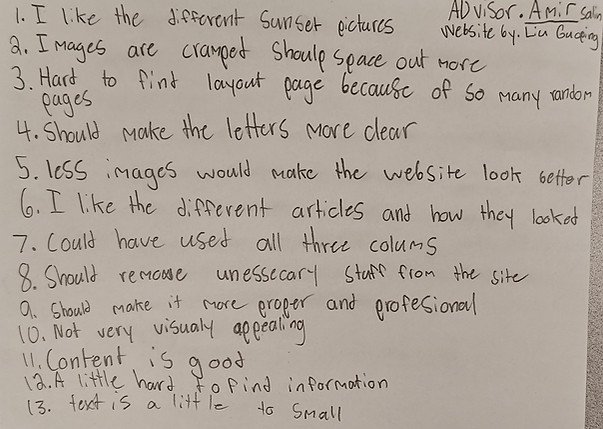 1. I like the different Sunset pictures
ADVISOR. Amir Salin
Website by. Liu Guoping
2. Images are cramped Should space out more
3. Hard to find layout page because of so many random
pages
4. Should make the letters more clear
5. less images would make the website look better
6. I like the different articles and how they looked
7. Could have used all three colums
8. Should remove unessecary stuff from the site
9. Should make it more proper and profesional
10. Not very visualy appealing
11. Content is good
12. A little hard to find information
13. text is a little to small